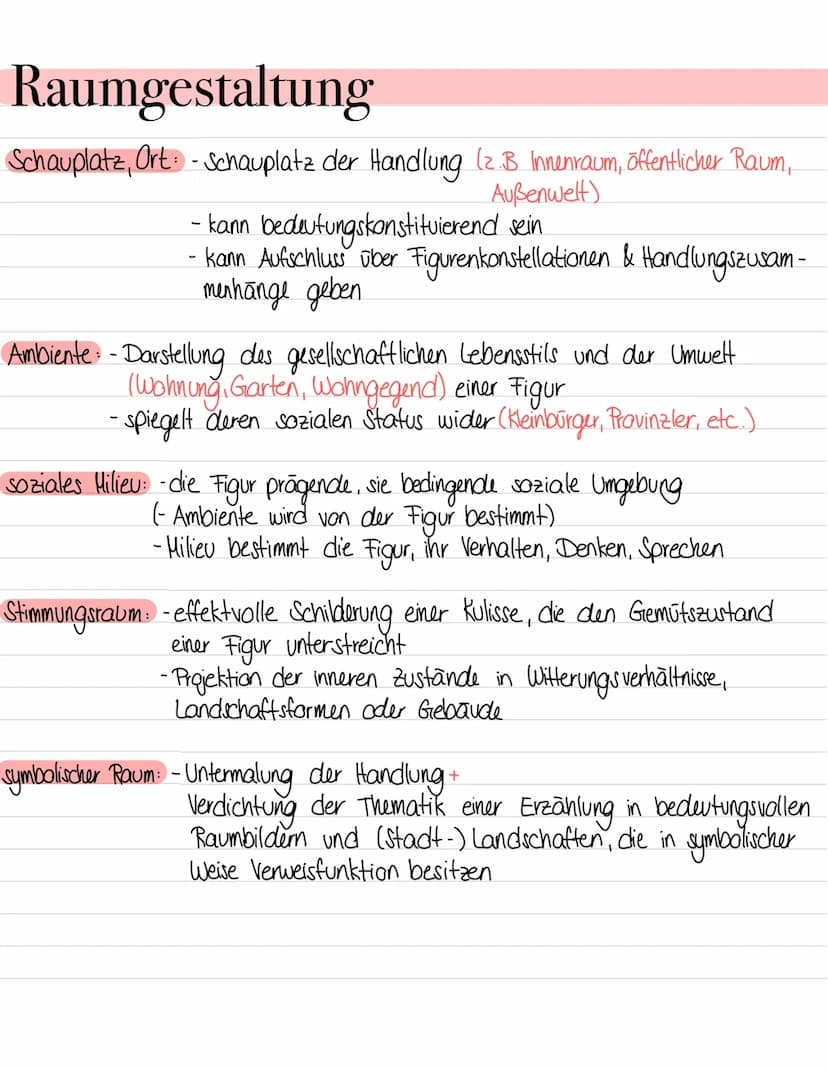 Raumgestaltung
Schauplatz, Ort: - Schauplatz der Handlung (z.B Innenraum, öffentlicher Raum,
Außenwelt)
- kann bedeutungskonstituierend sein
- kann Aufschluss über Figurenkonstellationen & Handlungszusam-
menhänge geben
Ambiente: - Darstellung des gesellschaftlichen Lebensstils und der Umwelt
(Wohnung, Garten, Wohngegend) einer Figur
- spiegelt deren sozialen Status wider (Kleinbürger, Provinzler, etc.)
soziales Milieu: - die Figur prägende, sie bedingende soziale Umgebung
(- Ambiente wird von der Figur bestimmt)
- Milieu bestimmt die Figur, ihr Verhalten, Denken, Sprechen
Stimmungsraum: - effektvolle Schilderung einer Kulisse, die den Gemütszustand
einer Figur unterstreicht
- Projektion der inneren Zustände in Witterungsverhältnisse,
Landschaftsformen oder Gebäude
symbolischer Raum: - Untermalung der Handlung +
Verdichtung der Thematik einer Erzählung in bedeutungsvollen
Raumbildern und (Stadt-) Landschaften, die in symbolischer
Weise Verweisfunktion besitzen